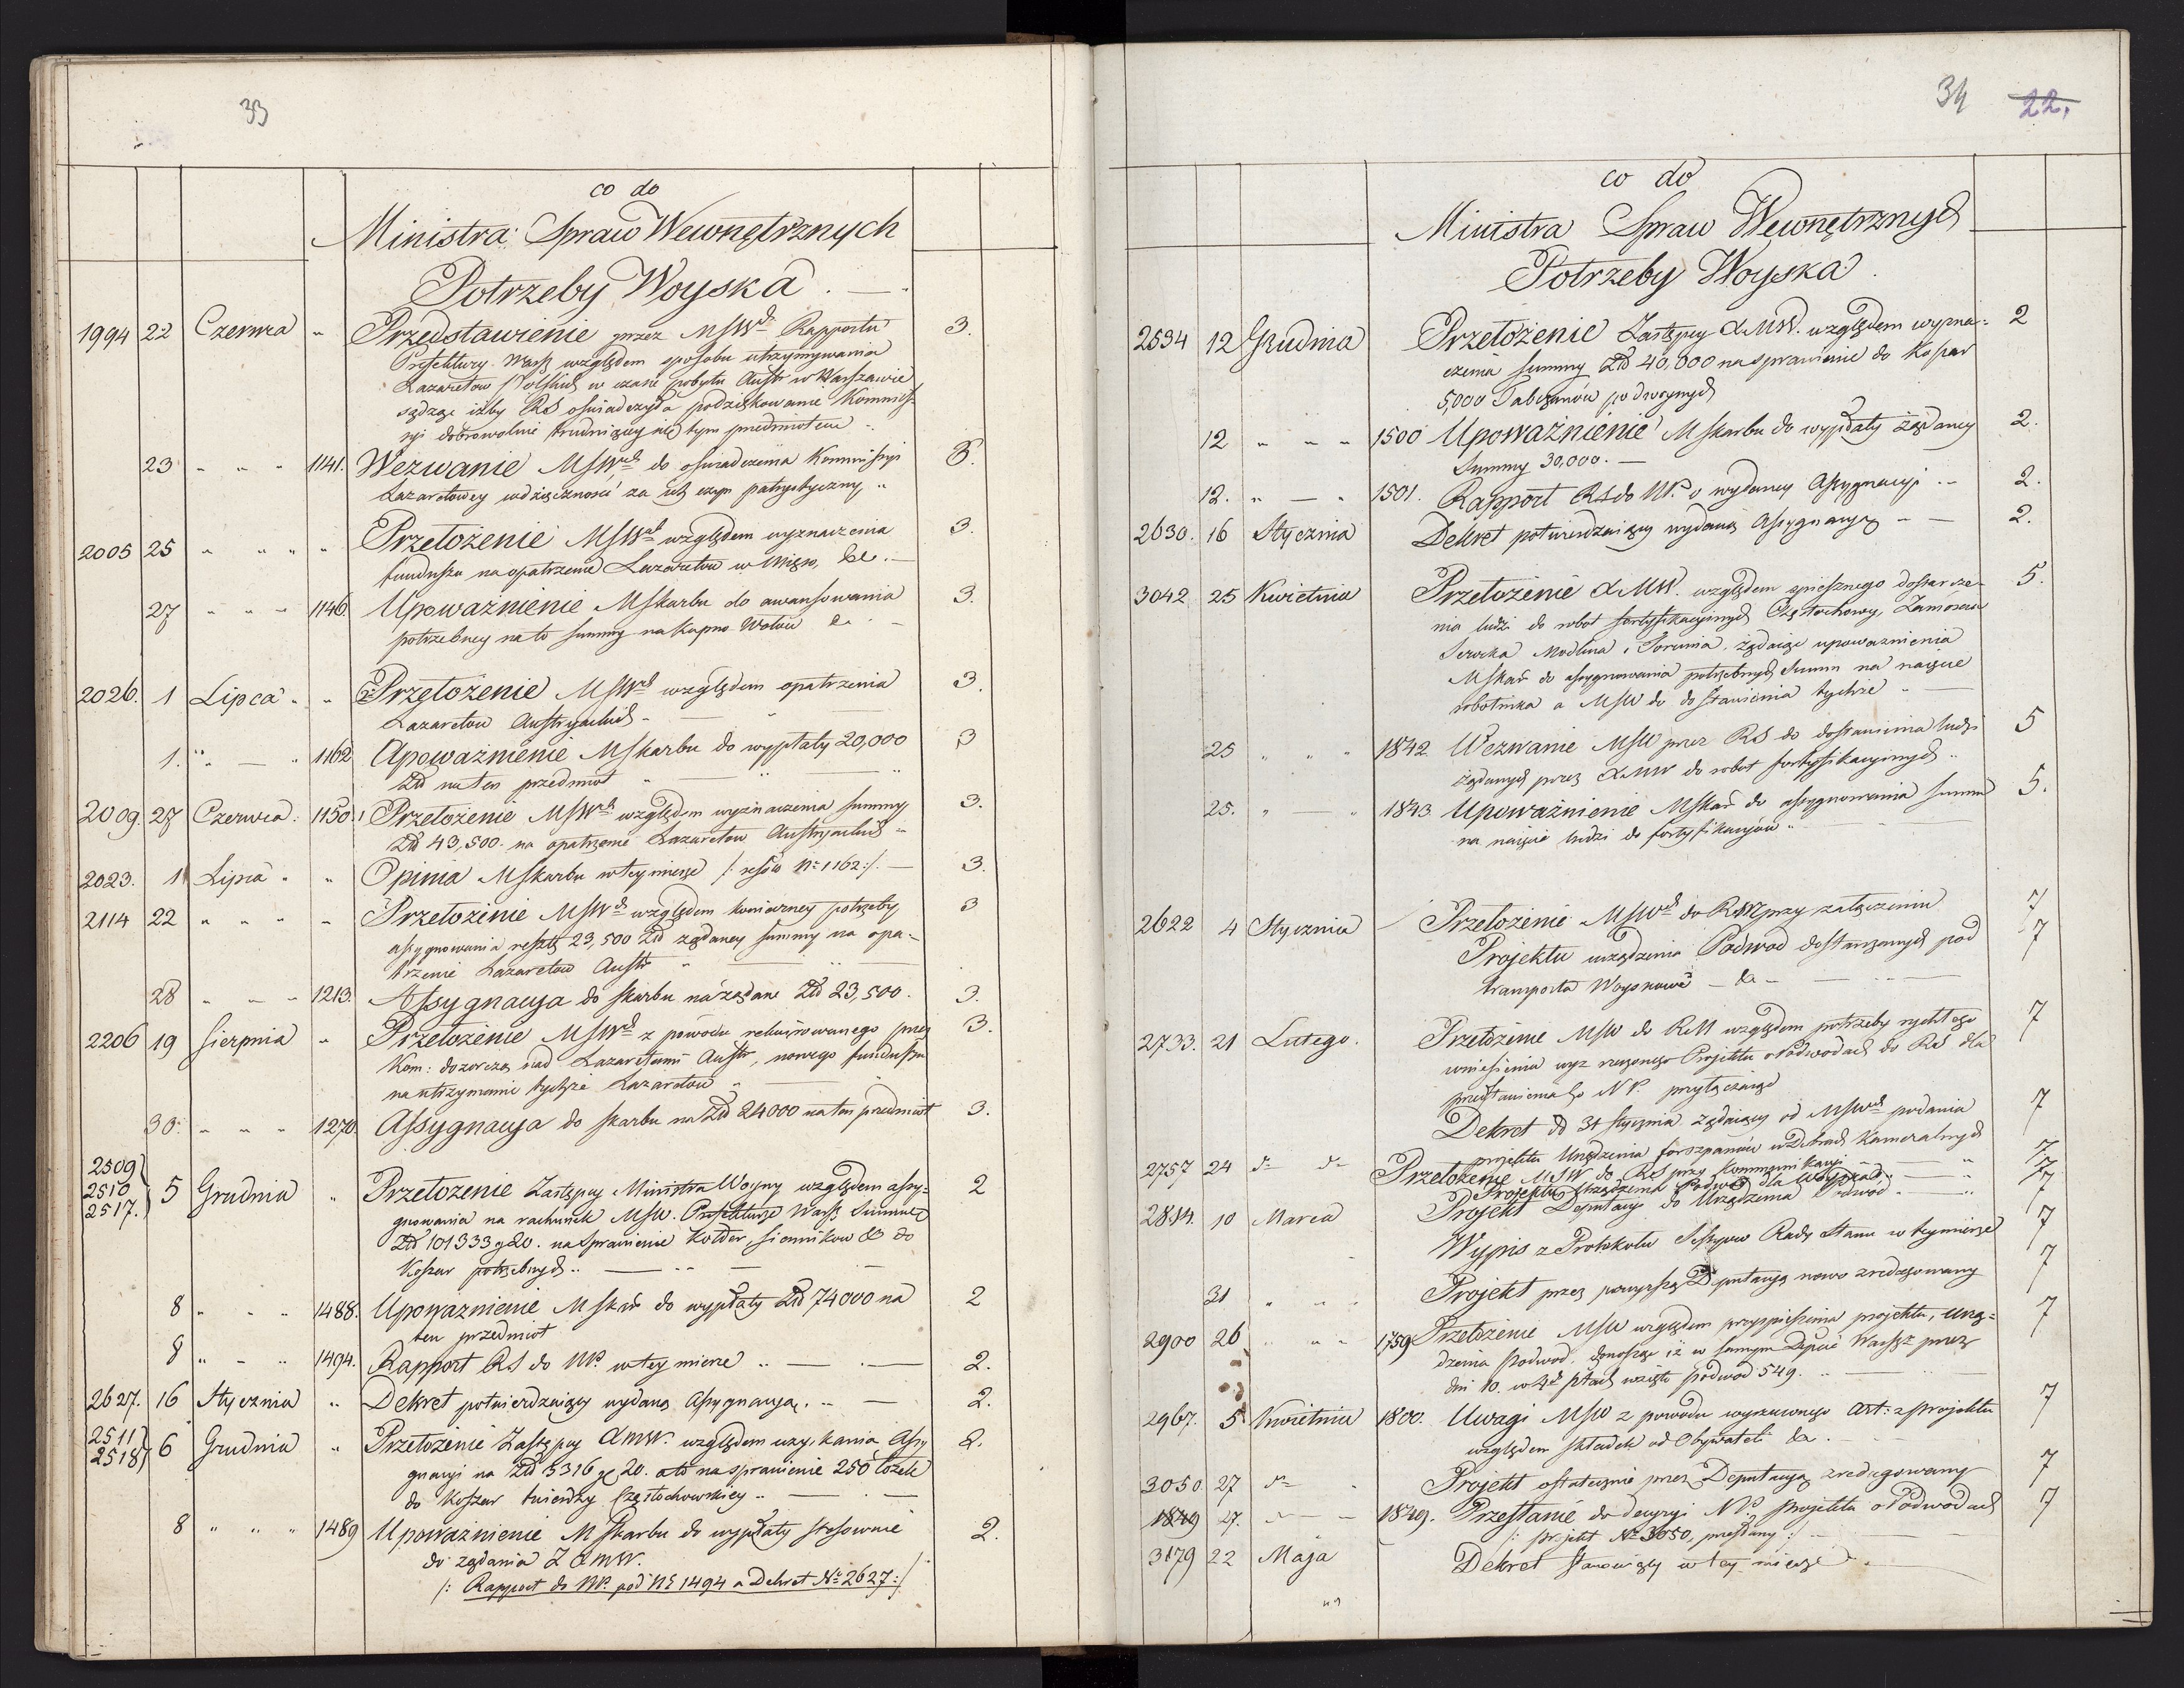 33
co do
Ministra Spraw Wewnętrznych
Potrzeby Woyska.
1994 22 Czerwca " Przedstawienie przez MSWch Rapportu 3.
Prefektury Warsz względem sposobu utrzymywania
Lazaretow Polskich w czasie pobytu Austr w Warszawie
sądząc iżby RS oświadczyła podziękowanie Kommis-
syi dobrowolnie trudniącey się tym przedmiotem "
23 " " " 1141. Wezwanie MSWch do oświadczenia Kommissyi 3.
Lazaretowey wdzięczności za ich czyn patryotyczny "
2005 25 " " " " Przełożenie MSWch względem wyznaczenia 3.
funduszu na opatrzenie Lazaretow w &c. —
27 " " " 1146 Upoważnienie MSkarbu do awansowania 3.
potrzebney na to summy na kupno Wołow &c. —
2026. 1 Lipca " " Przełożenie MSWch względem opatrzenia 3.
Lazaretow Austryackich —
1. " — " 1162 Upoważnienie MSkarbu do wypłaty 20,000 3
Złł na ten przedmiot "
2009. 27 Czerwca. 1150. Przełożenie MSWch względem wyznaczenia summy 3.
Złł 43,500. na opatrzenie Lazaretow Austryackich "
2023. 1 Lipca " " Opinia MSkarbu w tey mierze /: No 1162 :/. — 3.
2114 22 " " " " Przełożenie MSWch względem koniecney potrzeby 3
assygnowania reszty 23,500 Złł żądaney summy na opa-
trzenie Lazaretow Austr "
28 " — " 1213. Assygnacya do skarbu na żądane Złł 23,500. 3.
2206 19 Sierpnia " Przełożenie MSWch z powodu rekwirowanego przez 3.
Kom: dozorczą nad Lazaretami Austr, nowego funduszu
na utrzymanie tychże Lazaretow "
30. " — " 1270. Assygnacya do skarbu na Złł 24000 na ten przedmiot 3.
2509
2510
2517. 5 Grudnia " Przełożenie Zastępcy Ministra Woyny względem assy- 2
gnowania na rachunek MSW. Prefekturze Warsz Summę
Złł 101333 g 20. na sprawienie Kołder, siennikow &c do
Koszar potrzebnych ..
8 " " " 1488. Upoważnienie MSkar do wypłaty Złł 74000 na 2
ten przedmiot
8 " — " 1494. Rapport RS do NP. w tey mierze .. — 2.
2627. 16 Stycznia " Dekret potwierdzaiący wydaną Assygnacyą. — 2.
2511
2518 6 Grudnia " Przełożenie Zastępcy DMW. względem uzyskania Assy 2.
gnacyi na Złł 5316 g 20. a to na sprawienie 250 łożek
do Koszar twierdzy Częstochowskiey ..
8 " " " 1489 Upoważnienie MSkarbu do wypłaty stosownie 2.
do żądania Z DMW.
/: Rapport do NP. pod No 1494 a Dekret No 2627 :/
34 22.
co do
Ministra Spraw Wewnętrznych
Potrzeby Woyska.
2534 12 Grudnia Przełożenie Zastępcy DMW. względem wyzna- 2
czenia summy Złł 40,000 na sprawienie do Koszar
5,000 Tabczanów podwoynych
12 " " " 1500 Upoważnienie MSkarbu do wypłaty żądaney 2.
Summy 30,000. —
12. " — " 1501. Rapport RS do NP. o wydaney Assygnacyi .. 2.
2630. 16 Stycznia Dekret potwierdzaiący wydaną Assygnacyą " — 2.
3042 25 Kwietnia Przełożenie DMW. względem spiesznego dostarcze- 5.
nia ludzi do robot fortyfikacyinych Częstochowy, Zamościa
Serocka Modlina i Torunia, żądaiąc upoważnienia
MSkar do assygnowania potrzebnych Summ na naięcie
robotnika a MSW do dostawienia tychże "
25 " " " 1842 Wezwanie MSW przez RS do dostawienia ludzi 5
żądanych przez DMW do robot fortyfikacyinych ..
25. " — " 1843 Upoważnienie MSkar do assygnowania summ 5.
na naięcie ludzi do fortyfikacyów "
2622 4 Stycznia Przełożenie MSWch do RM przy załączeniu 7
Projektu urządzenia Podwod dostarczanych pod 7
transporta Woyskowe — &c —
2733. 21 Lutego. Przełożenie MSW do RM względem potrzeby rychłego 7
wniesienia wyż rzeczonego Projektu o Podwodach do RS dla
przedstawienia go NP. przyłączaiąc
Dekret dd 31 Stycznia żądaiący od MSWch podania 7
projektu Urządzenia forszpanów w Dobrach Kameralnych
2757 24 do do Przełożenie MSW do RS przy kommunikacyi 7
Projektu Urządzenia Podwod dla Woyska 7
2814. 10 Marca Projekt Deputacyi do Urządzenia Podwod 7
Wypis z Protokołu Sessyow Rady Stanu w tey mierze 7
31 " " " Projekt przez powyższą Deputacyą nowo zredagowany 7
2900 26 " " " 1759 Przełożenie MSW względem przyspieszenia projektu, Urzą- 7
dzenia Podwod, donosząc iż w samym Depcie Warsz przez
dni 10. w 4ch Ptach wzięto podwod 549.
2967. 5 Kwietnia 1800. Uwagi MSW z powodu wyrzuconego art: z projektu 7
względem składek od Obywateli &c.
3050 27 do Projekt ostatecznie przez Deputacyą zredagowany 7
1849 27. " — — 1849. Przesłanie do decyzyi NP. projektu o Podwodach 7
/: projekt No 3050, przesłany :/
3179 22 Maja Dekret stanowiący w tey mierze